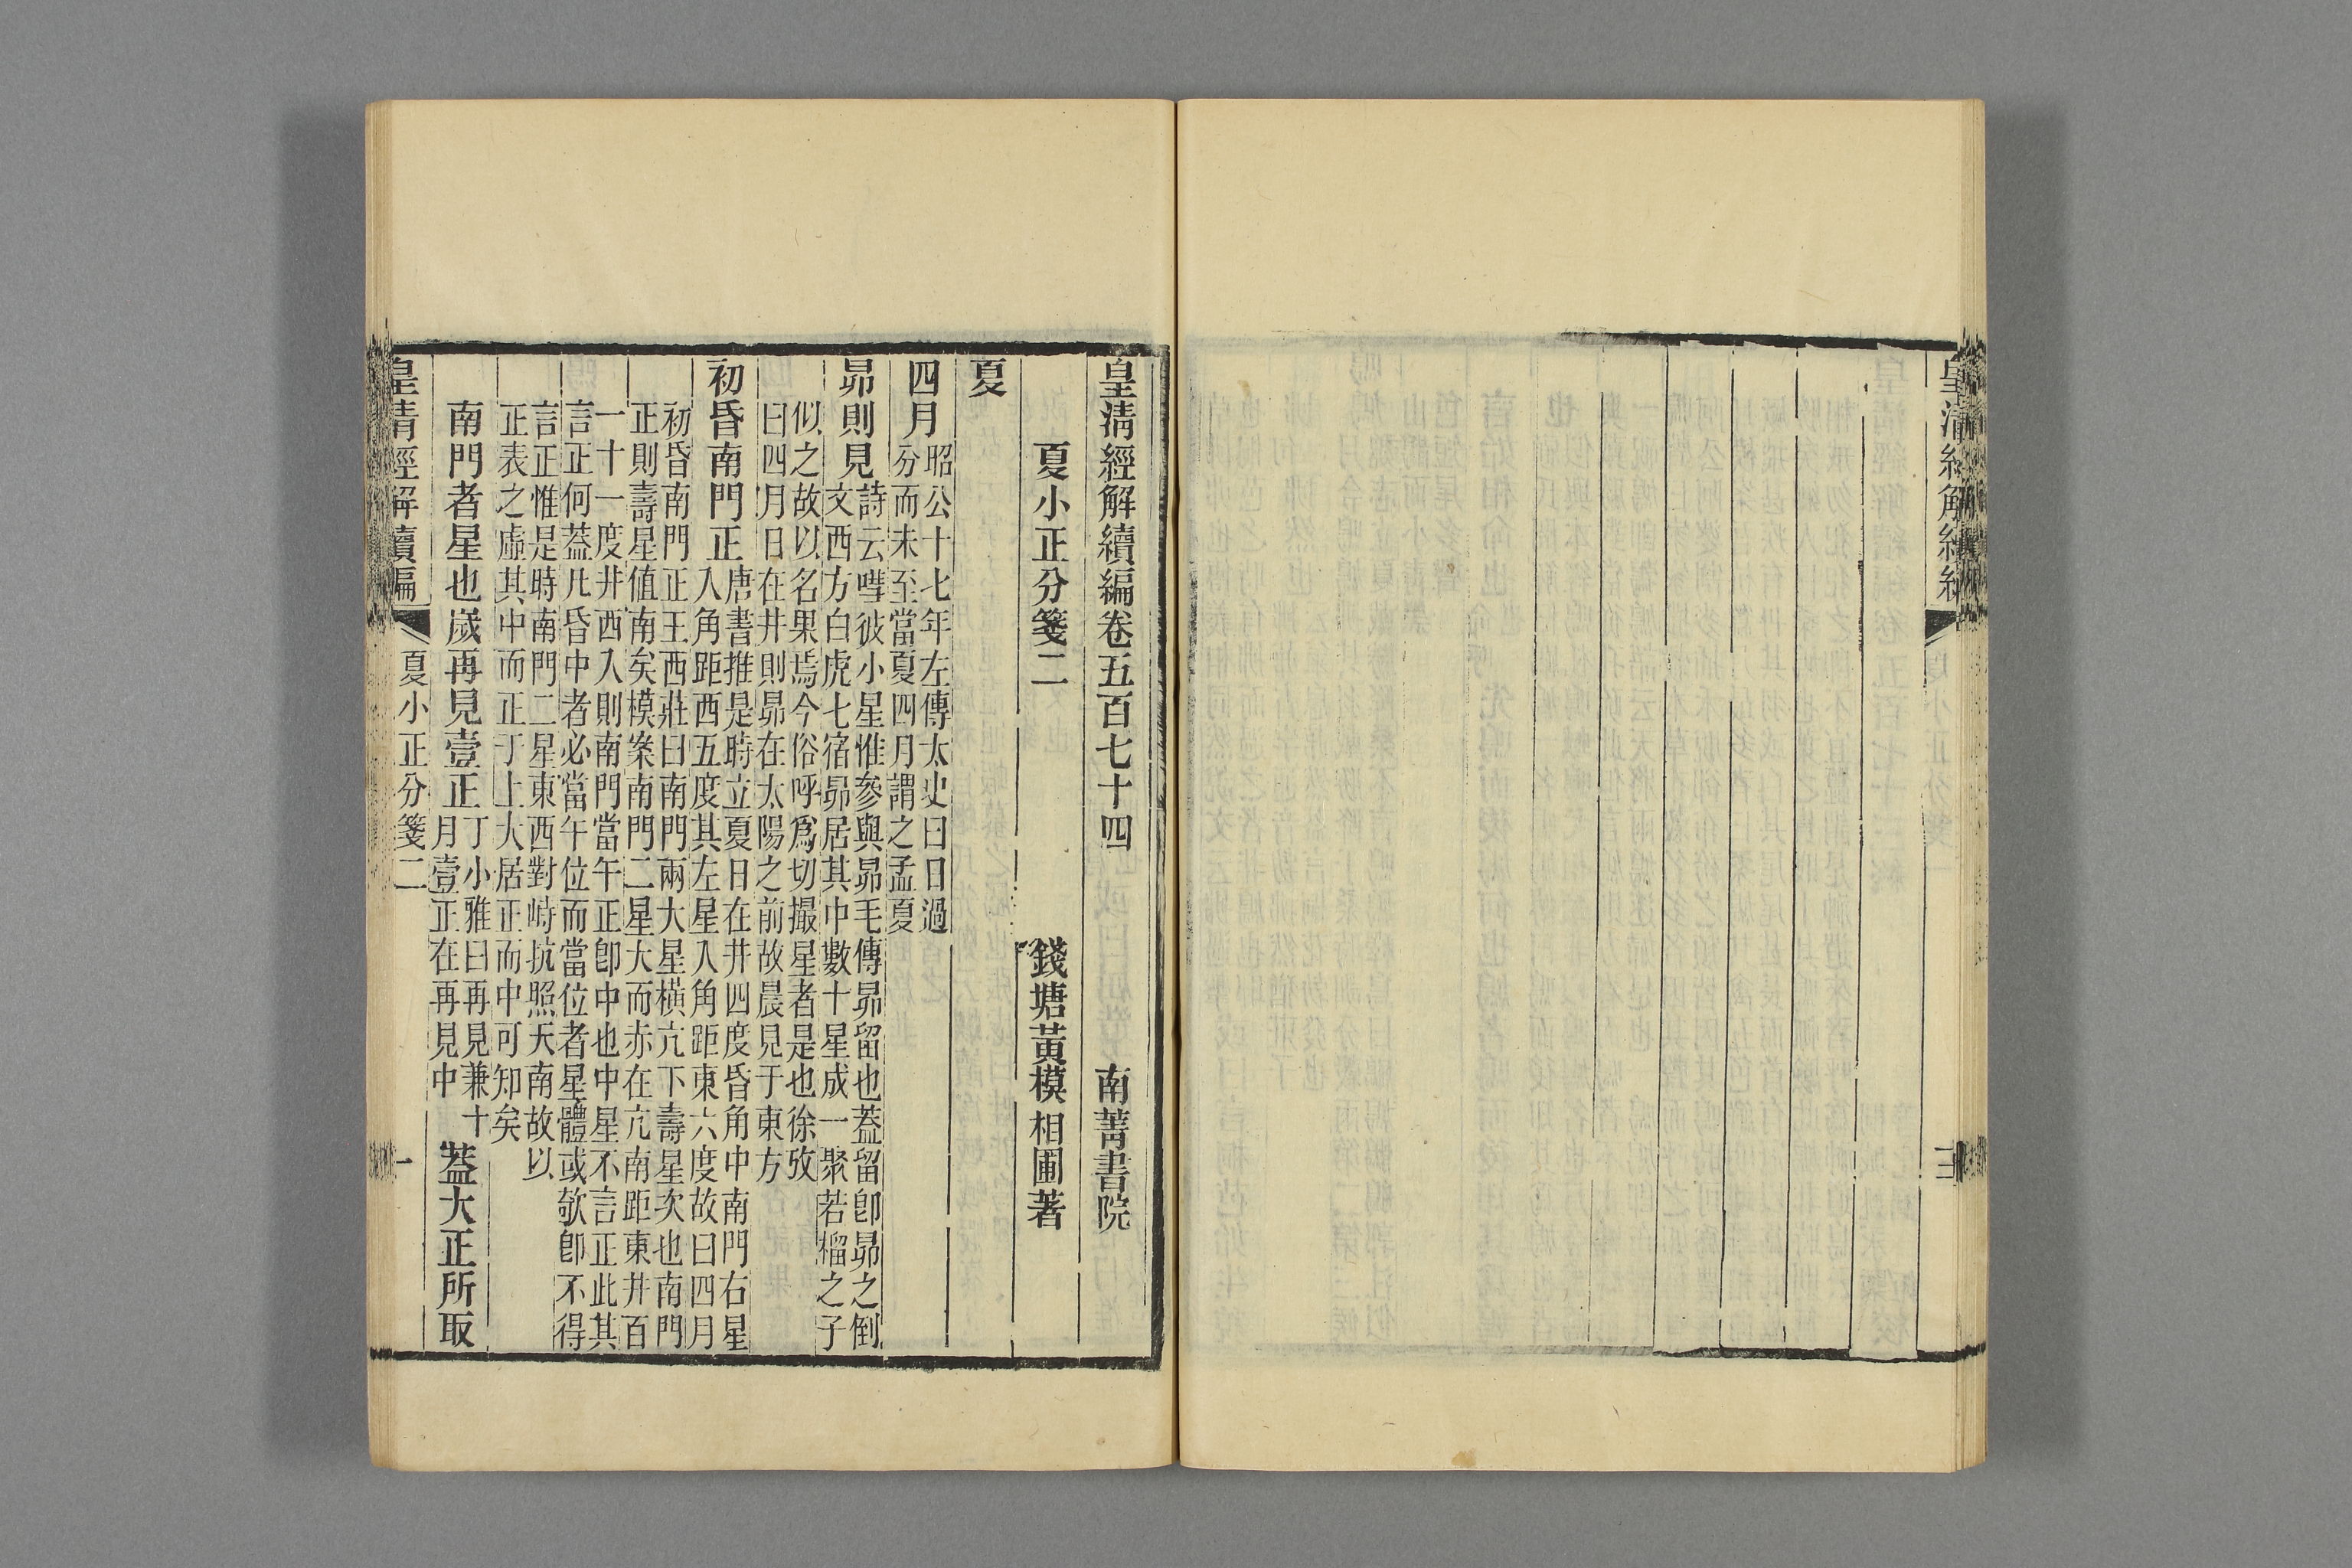 皇清經解續編卷五百七十四 南菁書院
夏小正分箋二 錢塘黃模相圃著
夏
四月
昭公十七年左傳太史曰日過
分而未至當夏四月謂之孟夏
昴則見
詩云嘒彼小星惟參與昴毛傳昴留也葢留卽昴之倒
文西方白虎七宿昴居其中數十星成一聚若榴之子
似之故以名果焉今俗呼爲切撮星者是也徐攷
曰四月日在井則昴在太陽之前故晨見于東方
初昏南門正
唐書推是時立夏日在井四度昏角中南門右星
入角距西五度其左星入角距東六度故曰四月
初昏南門正王西莊曰南門兩大星橫亢下壽星次也南門
正則壽星值南矣模案南門二星大而赤在亢南距東井百
一十一度井西入則南門當午正卽中也中星不言正此其
言正何葢凡昏中者必當午位而當位者星體或欹卽不得
言正惟是時南門二星東西對峙抗照天南故以
正表之虛其中而正于上大居正而中可知矣
南門者星也歲再見壹正
丁小雅曰再見兼十
月壹正在再見中
葢大正所取
皇清經解續編 夏小正分箋二 一